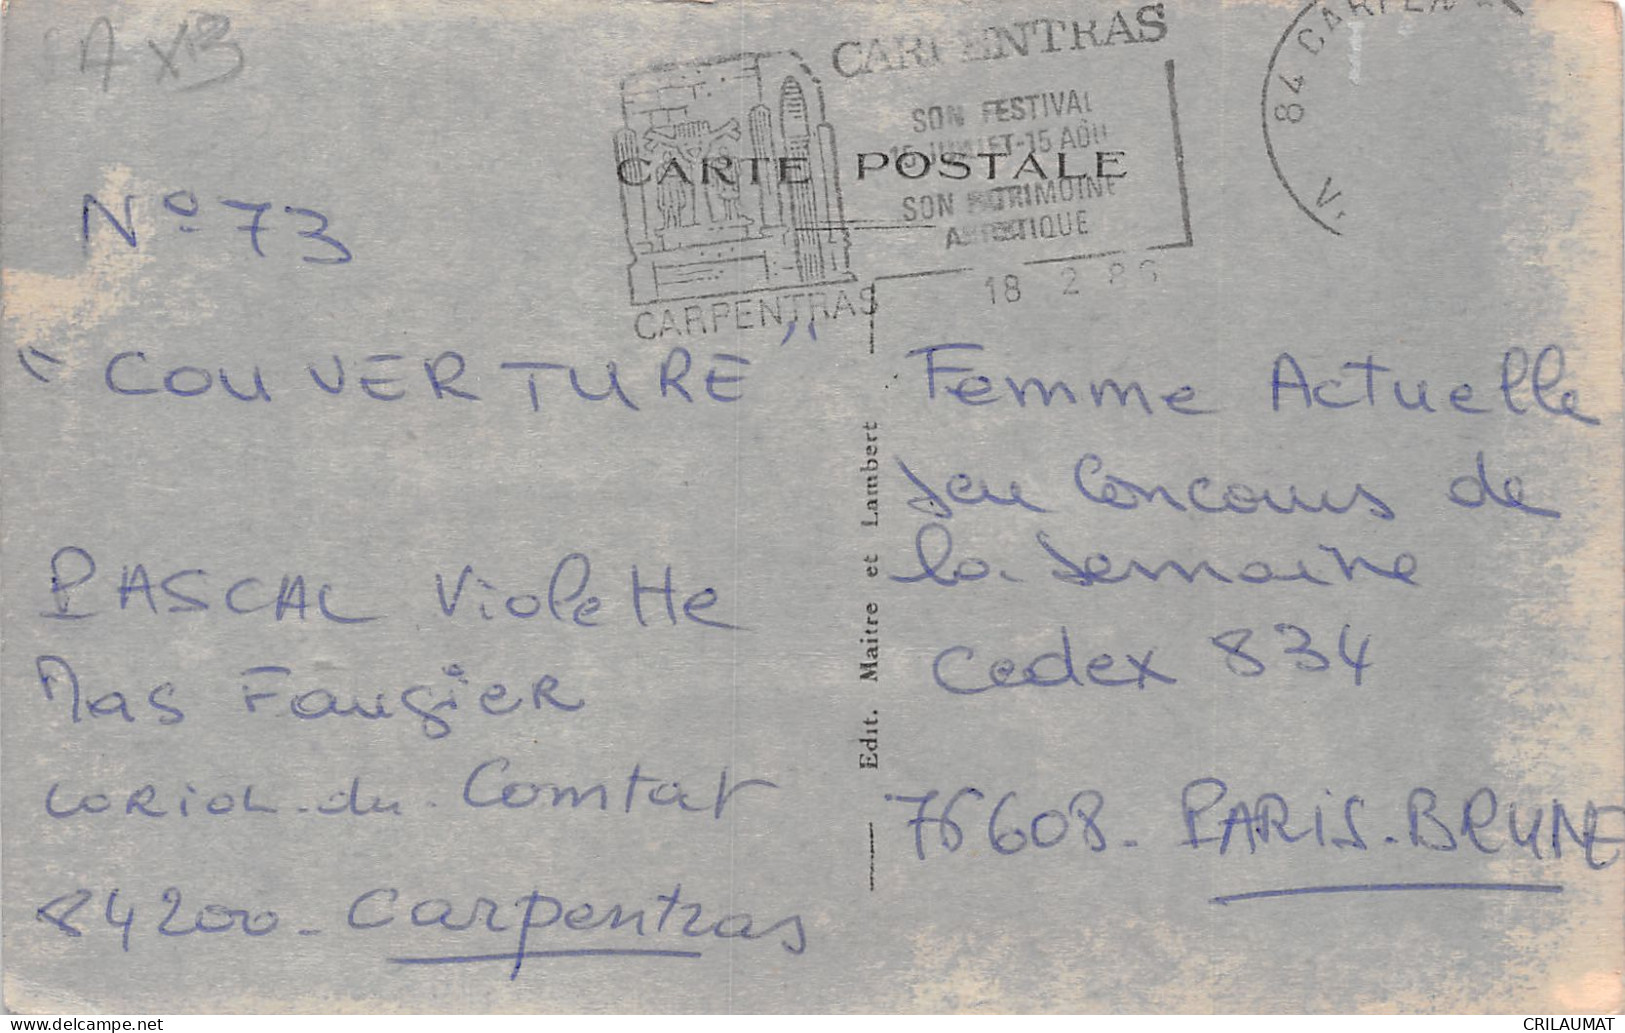 CARPENTRAS
SON FESTIVAL
15 JUILLET-15 AOÛT
SON PATRIMOINE
ARTISTIQUE
CARPENTRAS
18 2 86
84 CARPENTRAS
CARTE POSTALE
N° 73
"COUVERTURE"
PASCAL Violette
Mas Faugier
LORIOL-du-Comtat
84200-Carpentras
Edit. Maitre et Lambert
Femme Actuelle
Jeu Concours de
la Semaine
Cedex 834
75608-PARIS-BRUNE
CRILAUMAT